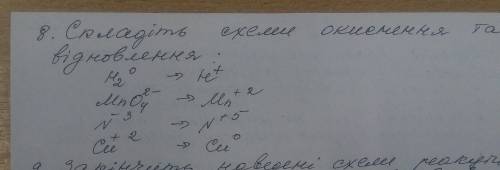 8. Складіть схеми окиснення та
відновлення :
H₂⁰ → H⁺
MnO₄²⁻ → Mn⁺²
N⁻³ → N⁺⁵
Cu⁺² → Cu⁰
9. Закінчить наведені схеми реакцій